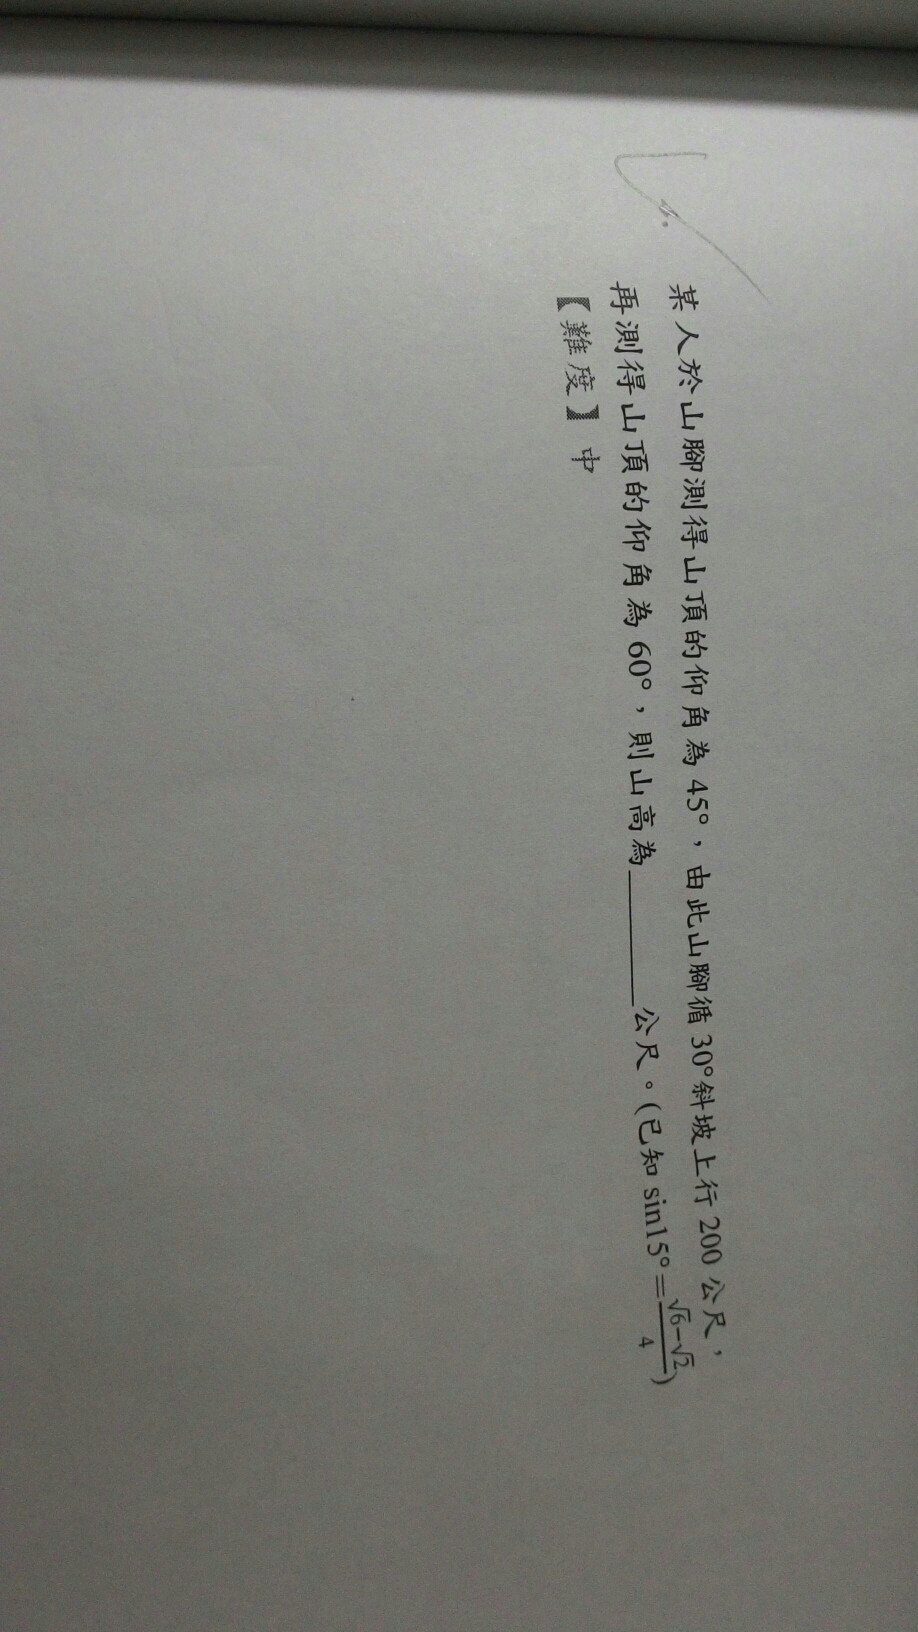 某人於山腳測得山頂的仰角為45°，由此山腳循30°斜坡上行200公尺，
再測得山頂的仰角為60°，則山高為________公尺。(已知 sin15°=\frac{√6-√2}{4})
【難度】中